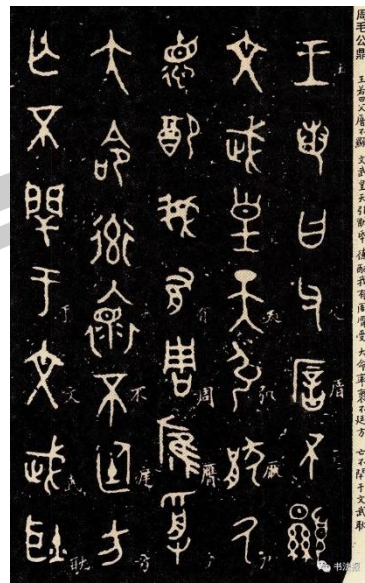 周毛公鼎
王若曰父厝不顯 文武皇天引厭厥 德配我有周膺受 大命率褱不廷方 亡不閈于文武耿
王若曰父厝不顯
文武皇天引厭厥
德配我有周膺受
大命率褱不廷方
亡不閈于文武耿
书法报